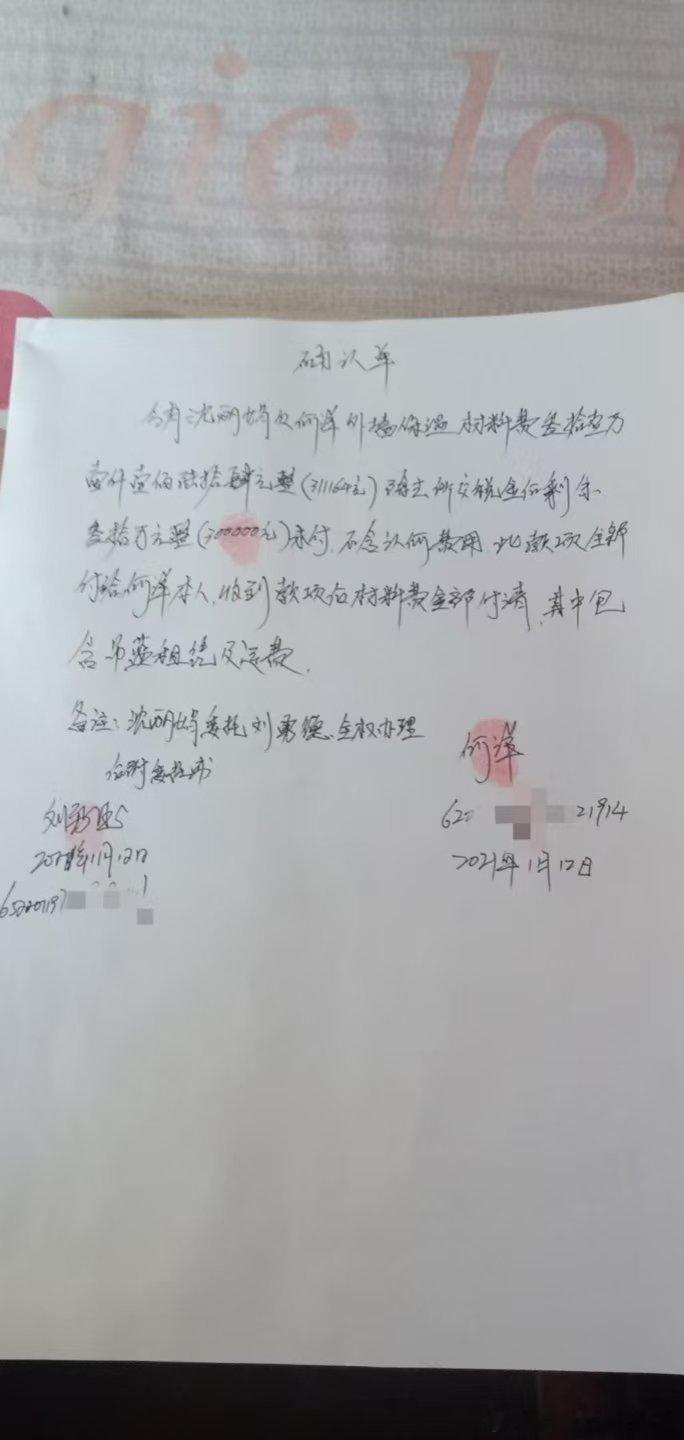 gic lou
确认单
今有:沈丽娟欠何洋外墙保温材料费叁拾壹万
壹仟壹佰陆拾肆元整(311164元)除去所交税金后剩余
叁拾万元整(300000元)未付,不含认何费用,此款项全部
付给何洋本人,收到款项后材料费全部付清,其中包
含吊蓝租凭及运费.
备注:沈丽娟委托刘勇德全权办理
后附委托书
何洋
刘勇德
620 21914
2021年1月12日
2021年1月12日